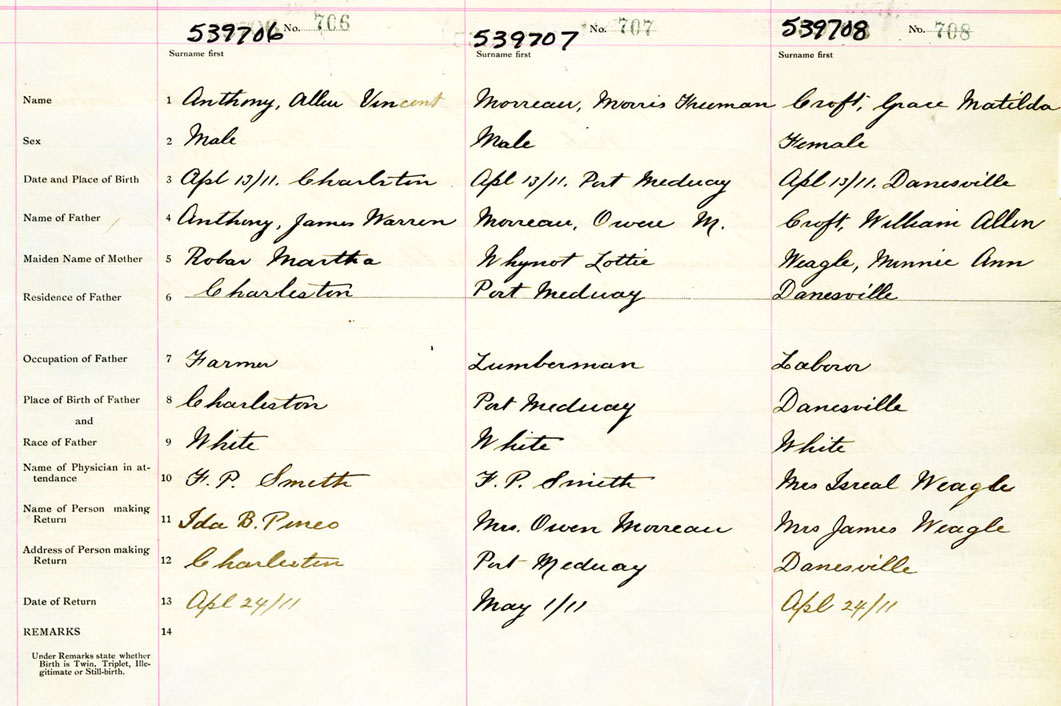 539706 No. 706 539707 No. 707 539708 No. 708
Surname first Surname first Surname first
Name 1 Anthony, Allen Vincent Morreau, Morris Freeman Croft, Grace Matilda
Sex 2 Male Male Female
Date and Place of Birth 3 Apl 13/11. Charleston Apl 13/11. Port Medway Apl 13/11. Danesville
Name of Father 4 Anthony, James Warren Morreau, Owen M. Croft, William Allen
Maiden Name of Mother 5 Robar Martha Whynot Lottie Weagle, Minnie Ann
Residence of Father 6 Charleston Port Medway Danesville
Occupation of Father 7 Farmer Lumberman Laboror
Place of Birth of Father 8 Charleston Port Medway Danesville
and
Race of Father 9 White White White
Name of Physician in at-
tendance 10 F. P. Smith F. P. Smith Mrs Isreal Weagle
Name of Person making
Return 11 Ida B. Pineo Mrs. Owen Morreau Mrs James Weagle
Address of Person making
Return 12 Charleston Port Medway Danesville
Date of Return 13 Apl 24/11 May 1/11 Apl 24/11
REMARKS 14
Under Remarks state whether
Birth is Twin, Triplet, Ille-
gitimate or Still-birth.